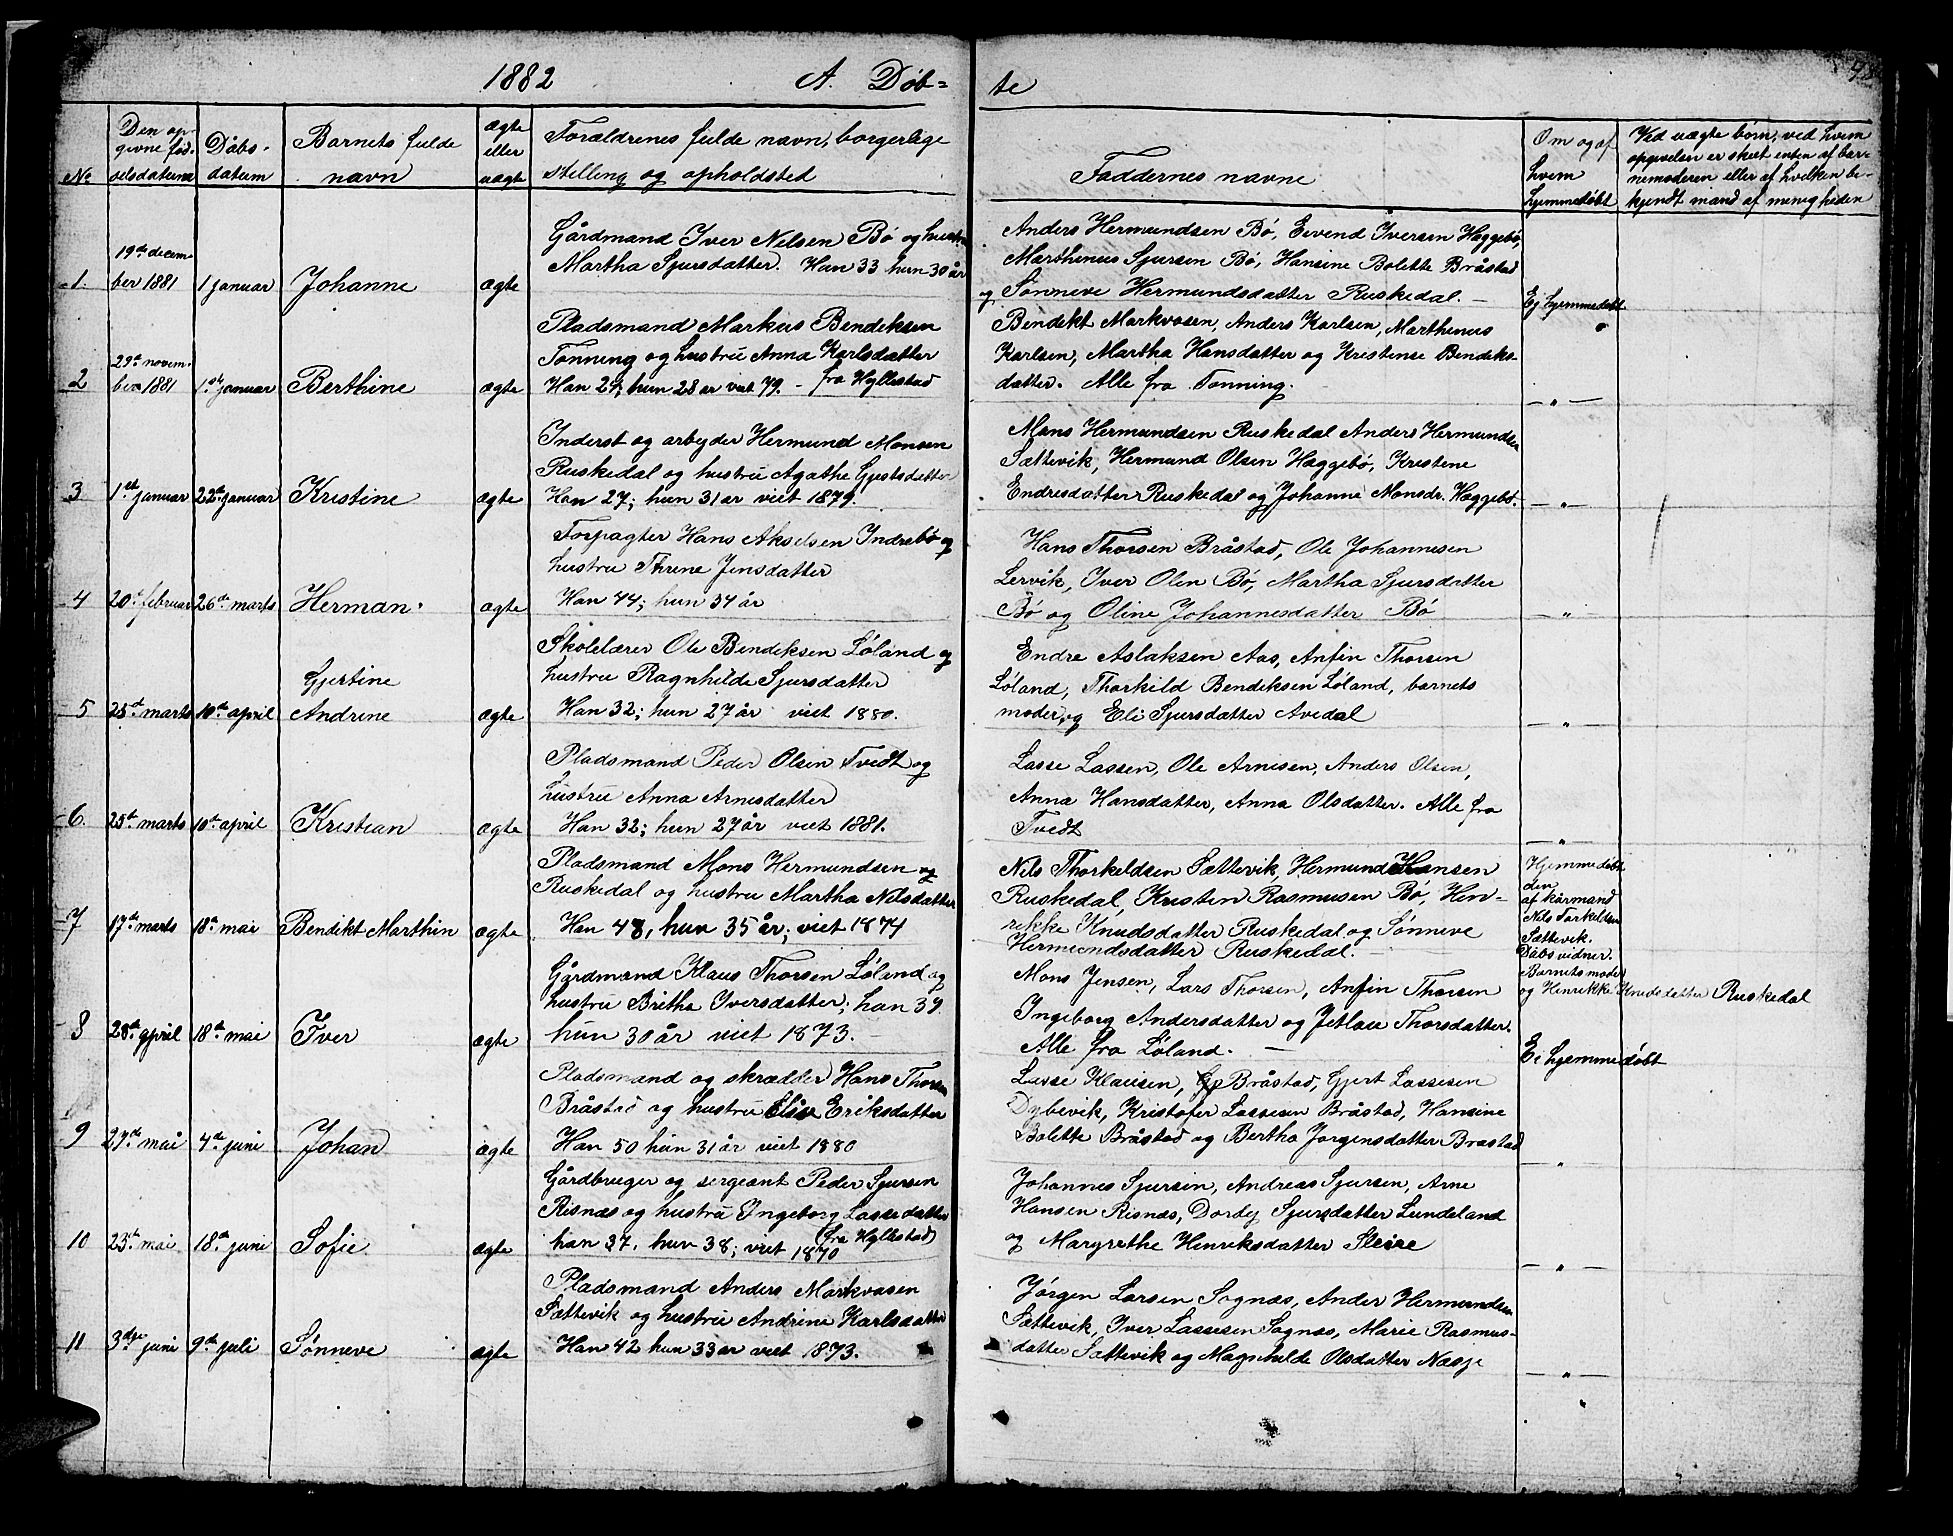 1882 A. Døb= te
No
Den op-
givne fød-
selsdatum
Dåbs-
datum
Barnets fulde
navn
ægte
eller
uægte
Forældrenes fulde navn, borgerlige
stilling og opholdsted
Faddernes navne
Om og af
hvem
hjemmedøbt
Ved uægte børn, ved hvem
opgivelsen er skeet enten af bar-
nemoderen eller af hvilken be-
kjendt mand af menigheden
1. 19de decem-
ber 1881 1 januar Johanne ægte
Gårdmand Iver Nilsen Bø og hustru
Martha Sjursdatter. Han 33 hun 30 år
Anders Hermundsen Bø, Eivend Iversen Hæggebø,
Marthinus Sjursen Bø, Hansine Bolette Bråstad
og Sønneve Hermundsdatter Ruskedal. —
Ej hjemmedøbt
2 29de novem-
ber 1881 1ste januar Berthine ægte
Pladsmand Markus Bendiksen
Tonning og hustru Anna Karlsdatter
Han 27, hun 28 år viet 79. — fra Hyllestad
Bendikt Markvosen, Anders Karlsen, Marthinus
Karlsen, Martha Hansdatter og Kristense Bendiks-
datter. Alle fra Tonning.
— „ —
3 1ste januar 22de januar Kristine ægte
Inderst og arbejder Hermund Monsen
Ruskedal og hustru Agathe Gjestsdatter
Han 27; hun 31 år viet 1879.
Mons Hermundsen Ruskedal Anders Hermundsen
Sættevik, Hermund Olsen Hæggebø, Kristene
Endresdatter Ruskedal og Johanne Monsdr. Hæggebø.
— „ —
4 20de februar 26de marts Herman. ægte
Forpagter Hans Akselsen Indrebø og
hustru Thrine Jensdatter
Han 44; hun 34 år
Hans Thorsen Bråstad, Ole Johannesen
Lervik, Iver Olen Bø, Martha Sjursdatter
Bø og Oline Johannesdatter Bø
— „ —
5 25de marts 10de april Gjertine
Andrine ægte
Skolelærer Ole Bendiksen Løland og
hustru Ragnhilde Sjursdatter
Han 32; hun 27 år viet 1880.
Endre Aslaksen Aas, Anfin Thorsen
Løland, Thorkild Bendiksen Løland, barnets
moder, og Eli Sjursdatter Avedal
— „ —
6. 25de marts 10de april Kristian ægte
Pladsmand Peder Olsen Tvedt og
hustru Anna Arnesdatter
Han 32; hun 27 år viet 1881.
Lasse Lassen, Ole Arnesen, Anders Olsen,
Anna Hansdatter, Anna Olsdatter. Alle fra
Tvedt
— „ —
7 17de marts 18de mai Bendikt Marthin ægte
Pladsmand Mons Hermundsen
Ruskedal og hustru Martha Nilsdatter
Han 48, hun 35 år; viet 1874
Nils Thorkeldsen Sættevik, Hermund Hansen
Ruskedal, Kristen Rasmusen Bø, Hen-
rikke Knudsdatter Ruskedal og Sønneve
Hermundsdatter Ruskedal. —
Hjemmedøbt
den
af kårmand
Nils Torkeldsen
Sættevik.
Dåbsvidner.
Barnets moder
og Henrikke Knudsdatter Ruskedal
8 28de april 18de mai Iver ægte
Gårdmand Klaus Thorsen Løland og
hustru Britha Iversdatter; han 39.
hun 30 år viet 1873. —
Mons Jensen, Lars Thorsen, Anfin Thorsen
Ingeborg Andersdatter og Jetlau Thorsdatter.
Alle fra Løland. —
Ei hjemmedøbt
9 27de mai 4de juni Johan ægte
Pladsmand og skrædder Hans Thorsen
Bråstad og hustru Elise Eriksdatter
Han 50 hun 31 år viet 1880
Lasse Klausen, Bråstad, Gjert Lassesen
Dybevik, Kristofer Lassesen Bråstad, Hansine
Bolette Bråstad og Bertha Jørgensdatter Bråstad
— „ —
10 23de mai 18de juni Sofie ægte
Gårdbruger og sergeant Peder Sjursen
Risnæs og hustru Ingeborg Lassedatter
han 37, hun 38; viet 1870 (fra Hyllestad)
Johannes Sjursen, Andreas Sjursen, Arne
Hansen Risnæs, Dordej Sjursdatter Lundeland
og Margrethe Henriksdatter Sleire
— „ —
11 3dje juni 9de juli Sønneve ægte
Pladsmand Anders Markvosen
Sættevik og hustru Andrine Karlsdatter
Han 42 hun 33 år viet 1873.
Jørgen Larsen Sognæs, Ander Hermundsen
Sættevik, Iver Lassesen Sognæs, Marie Rasmus-
datter Sættevik og Magnhilde Olsdatter Næsje
— „ —